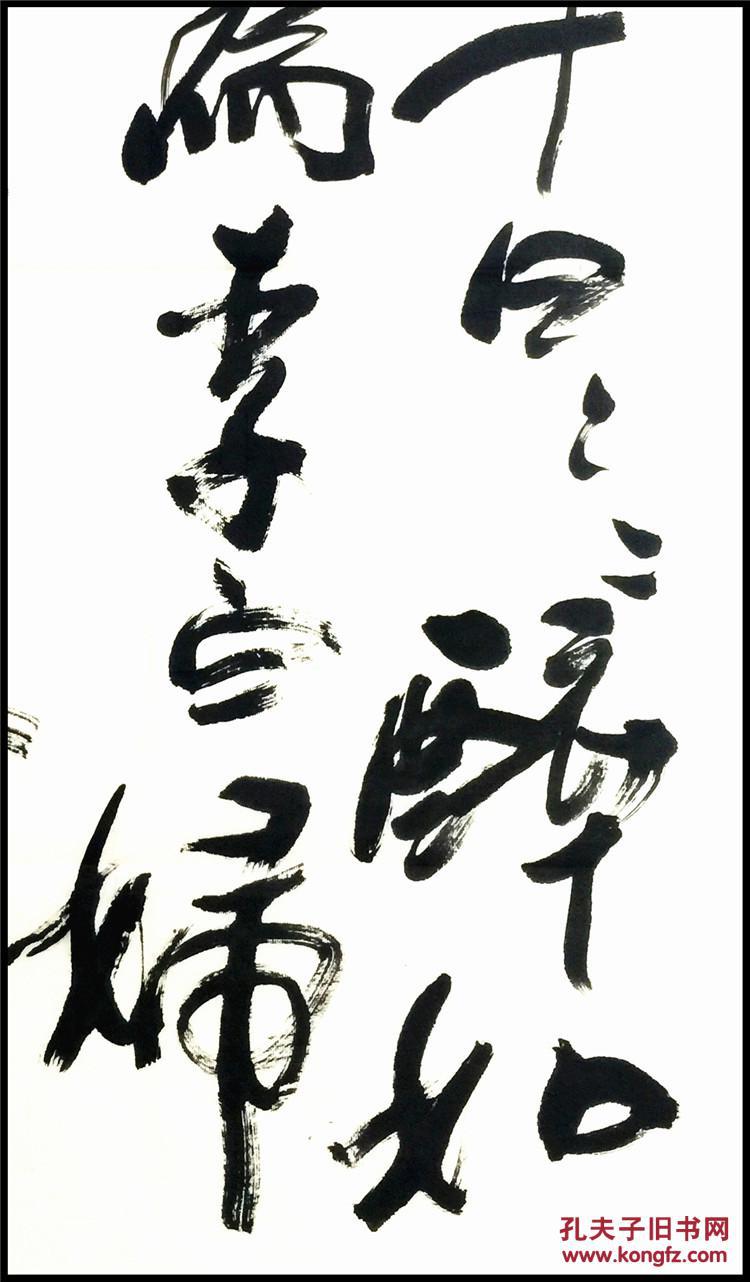 十日々々醉如
為李白婦
孔夫子旧书网
www.kongfz.com